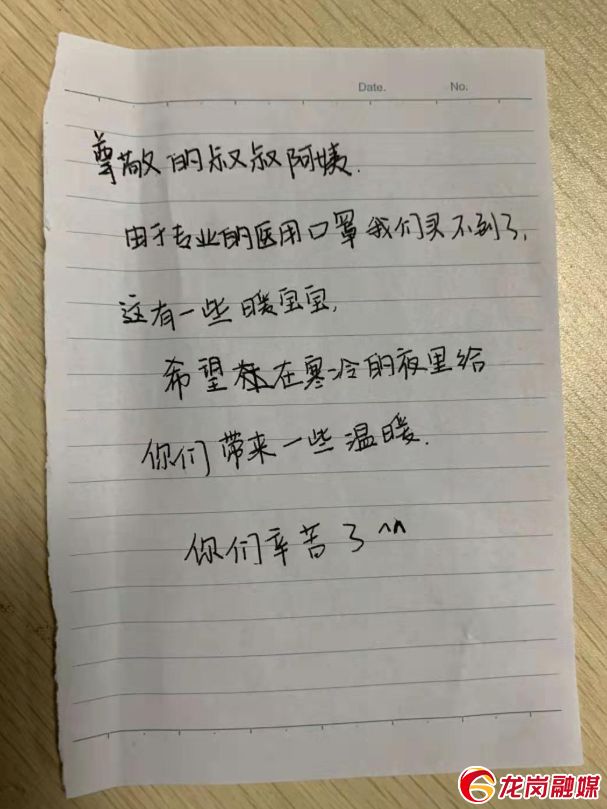 Date. No.
尊敬的叔叔阿姨.
由于专业的医用口罩我们买不到了,
这有一些暖宝宝,
希望在寒冷的夜里给
你们带来一些温暖.
你们辛苦了^^
龙岗融媒